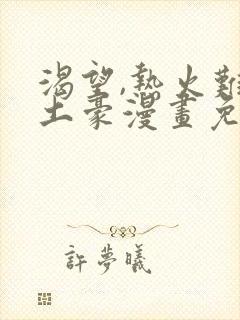 渴望,熱火難
土豪漫畫免
許夢曦